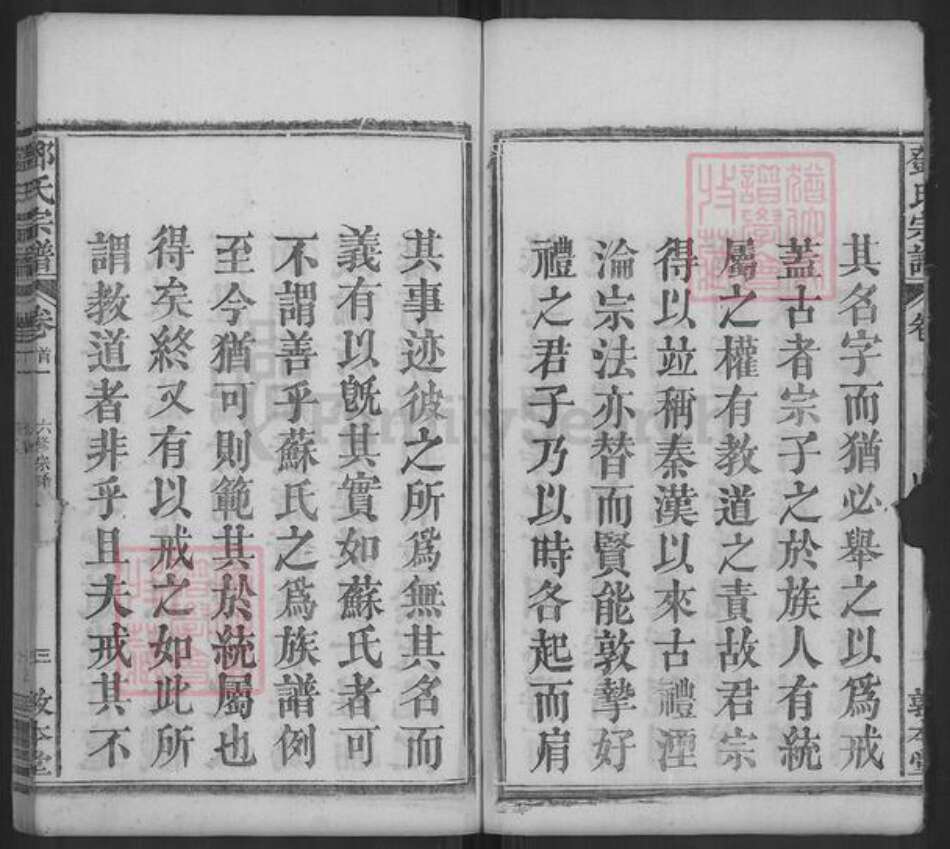 鄧氏宗譜
卷
敦本堂
其名字而猶必舉之以爲戒
蓋古者宗子之於族人有統
屬之權有教道之責故君宗
得以竝稱秦漢以來古禮湮
淪宗法亦替而賢能敦摯好
禮之君子乃以時各起而肩
其事迹彼之所爲無其名而
義有以旣其實如蘇氏者可
不謂善乎蘇氏之爲族譜例
至今猶可則範其於統屬也
得矣終又有以戒之如此所
謂教道者非乎且夫戒其不
鄧氏宗譜
卷首一
六修
三
敦本堂
FamilySearch